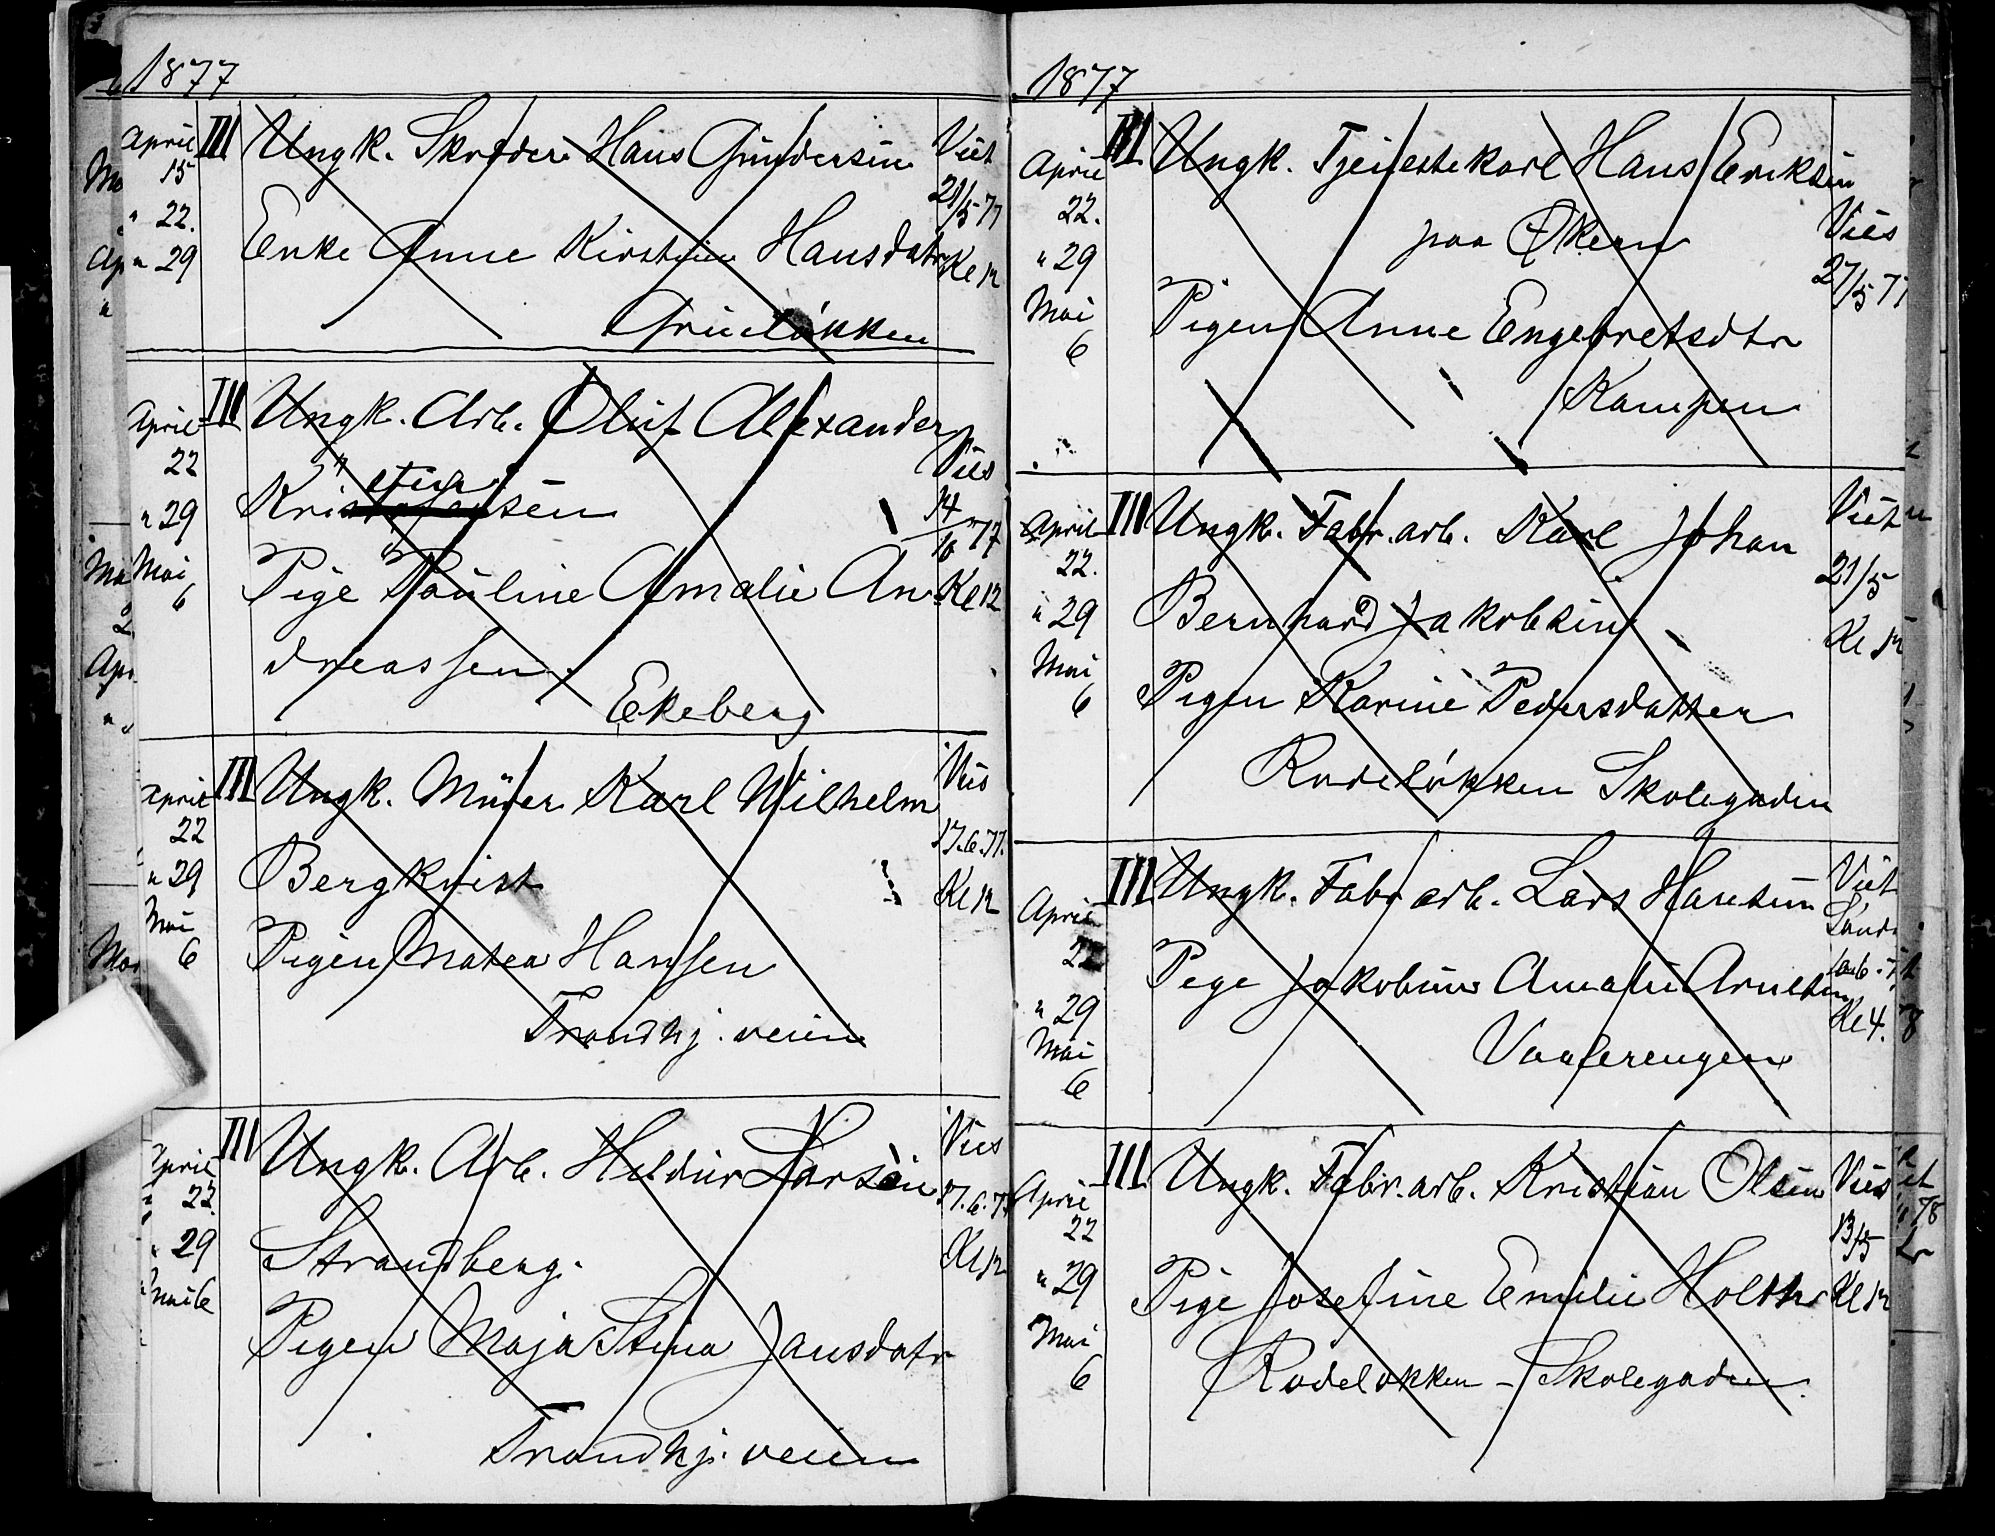 1877
April III Ungk. Skræder Hans Gundersen Viet
15
21/5 77
" 22.
" 29 Enke Anne Kirstine Hansdatr Kl 12
Grüneløkken
April III Ungk. Arb. Oluf Alexander Vies
22
" 29 Kristensen 14/10 77
Mai Pige Pauline Amalie An- Kl 12
6
dreassen.
Ekeberg
April III Ungk. Murer Karl Wilhelm Vies
22 17.6.77.
" 29 Bergkvist Kl 12
Mai
6 Pigen Matea Hansen
Trondhj. veien
April III Ungk. Arb. Larsen Vies
22. 17.6.77
" 29 Strandberg. Kl 12
Mai 6
Pigen Maja Stina Jansdatr
Trondhj. veien
1877
April III Ungk. Tjenestekarl Hans Eriksen
22. paa Økern Vies
" 29 27/5 77
Mai Pigen Anne Engebretsdtr
6
Kampen
April III Ungk. Fabr. arb. Karl Johan Viet
22. 21/5
" 29 Bernhard Jakobsen Kl 12
Mai
6 Pigen Karine Pedersdatter
Rodeløkken Skolegaden
April III Ungk. Fabr arb. Lars Hansen Viet
22 Pige Amalie
" 29 Kl 4.
Mai Vaalerengen
6
April III Ungk. Fabr. arb. Kristian Olsen Vies
22 13/5
" 29 Pige Josefine Emilie Holthe Kl 12
Mai
6 Rodeløkken - Skolegaden.